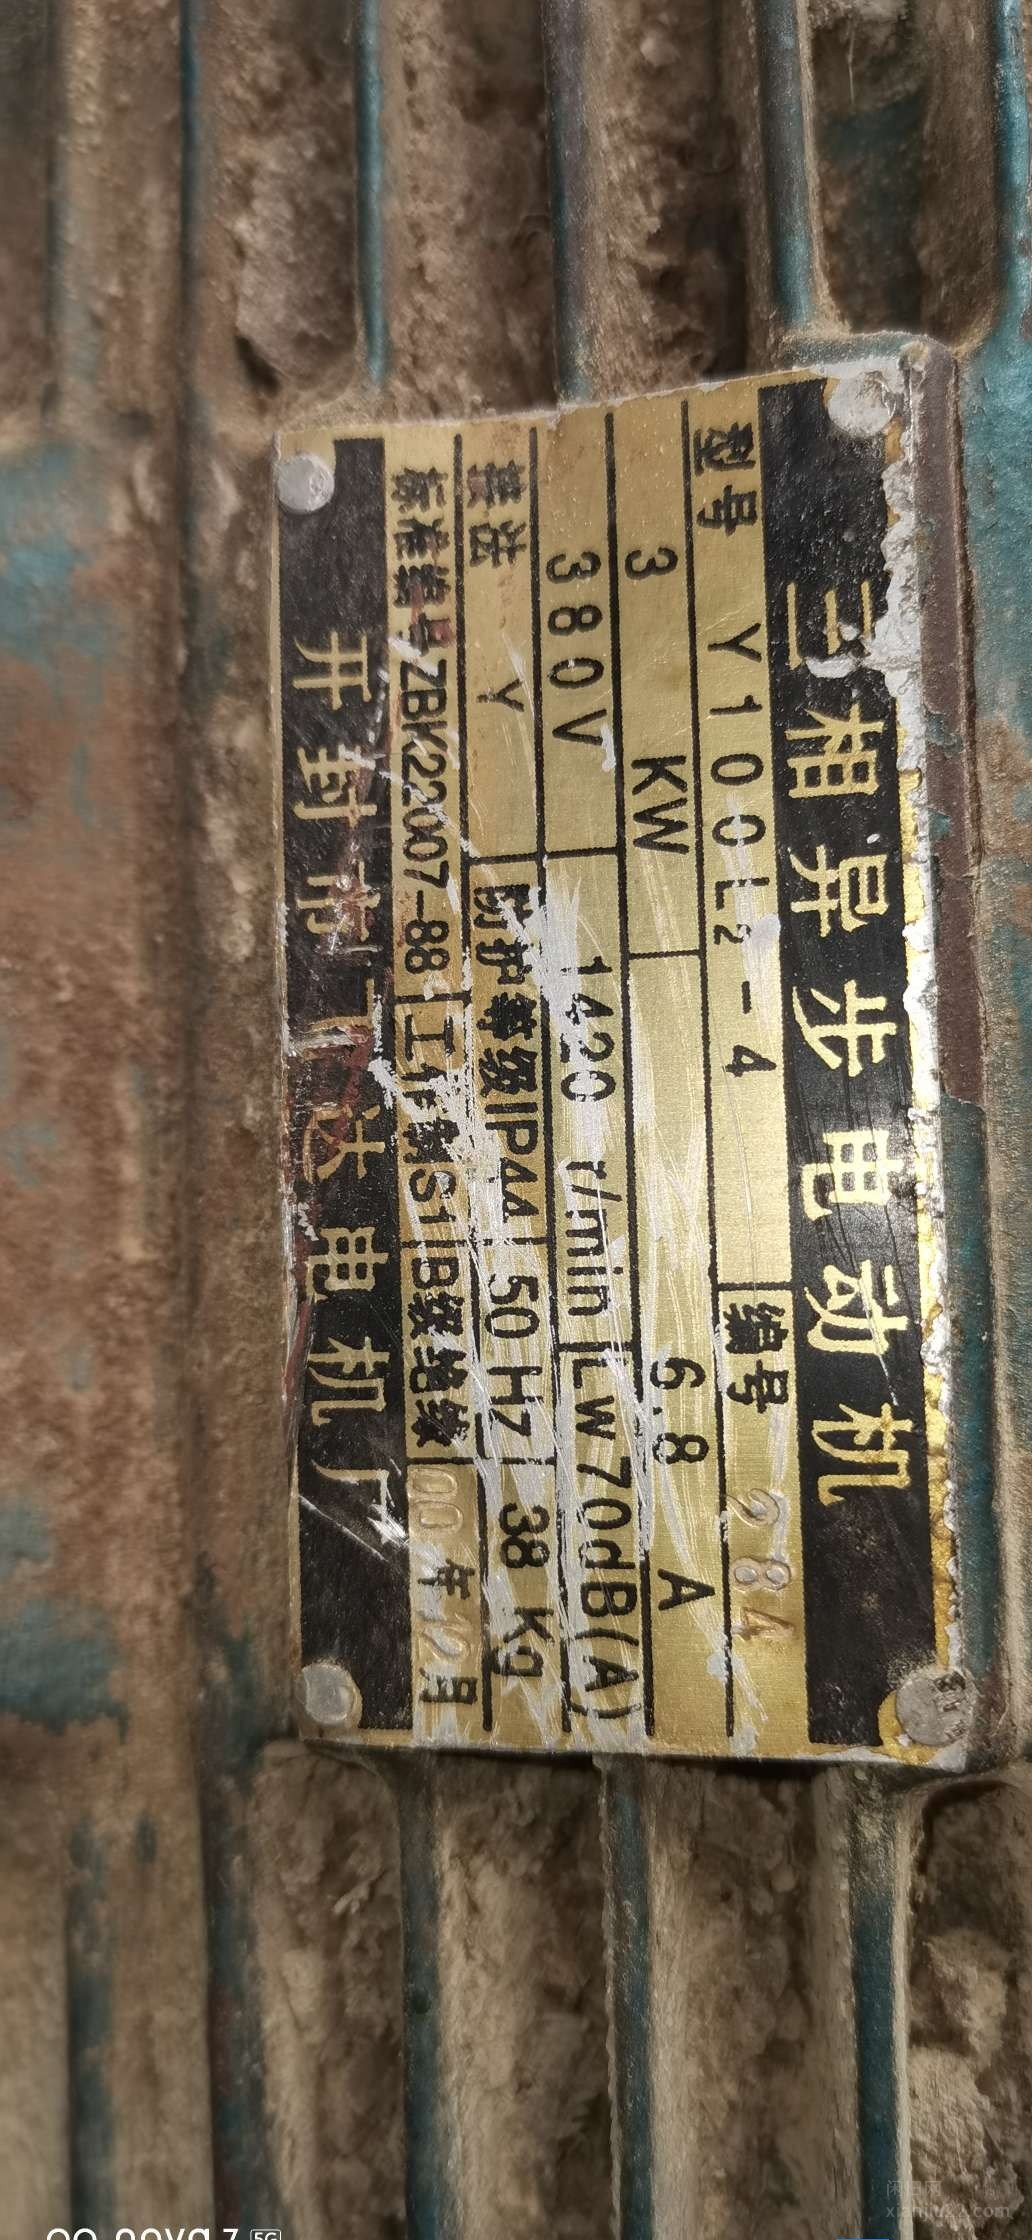 三相异步电动机
型号 Y100L2-4 编号 284
3 KW 6.8 A
380V 1420 r/min LW70dB(A)
接法 Y 防护等级IP44 50HZ 38 Kg
标准编号ZBK22007-88 工作制S1 B级绝缘 00年12月
开封市 电机厂
nova 7 5G
xianjiu22.com